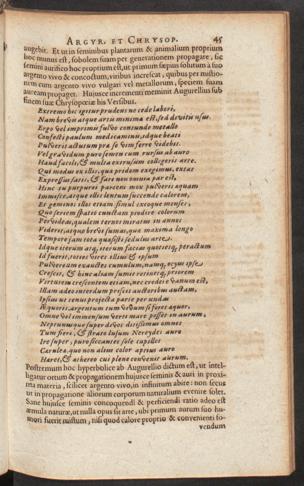 ARGYR. ET CHRYSOP. 45
augebit. Et ut in seminibus plantarum & animalium proprium
hoc munus est, sobolem suam per generationem propagare, sic
semini aurifico hoc proprium est, ut primum sæpius solutum a suo
argento vivo & concoctum, viribus increscat, quibus per mistio-
nem cum argento vivo vulgari vel metallorum, speciem suam
auream propaget. Hujusce incrementi meminit Augurellius sub
finem suæ Chrysopœiæ his Versibus.
Extremo hoc igitur prudens ne cede labori,
Nam brevis atque arsis minima est, sed devius usus.
Ergo vel imprimis fulvo comunde metallo
Confecti paulum medicaminis, idque beati
Pulveris actutum pra se vim ferre videbis.
Vel gravidum puro semen cum rursus ab auro
Hand facili, & multa extrusum colligeris arte.
Qui modus ex illis, qua prodom exegimus, extat
Expressus satis, & fare non omnia par est,
Hinc su purpureis parcens mox pulveris aquam
Immisce, atque ollis lentum succende calorem,
Et geminos illos etiam simul excoque menses,
Quo seriem spatio cunctam prodire colorum
Per vedeas, qualem ternis mirasim in annis
Videris, atque brevi sumas, qua maxima longo
Tempore jam tota quasisti sedulus arte.
Idque iterum atq, iterum facias quoteisq, peractum
Id fuerit, toties vires illius & ipsum
Pulveream exauctus cumulum, namq, eq; use ipse
Crescis, & hunc alsam sumis resineeq; priorem
Virtutem crescentem etiam, nec credis vanum est,
Illam adeo interdum prosies auctorilus auctam,
Ipsius ut tenui projecta parte per undas
Æquoris, argentum tum vivum si foret aquor,
Omne vel immensum verti mare posset in aurum,
Neptunusque super dives ditissimus omnes
Tum fieret, & strato lusum Nereides auro
Ire super, puro siccantes sole capillos
Cærulea, quo non alius color aptius auro
Haret, & athereo cui plene convenit aurum.
Postremum hoc hyperbolice ab Augurellio dictum est, ut intel-
ligatur ortum & propagationem hujusce seminis & auri in proxi-
ma materia, scilicet argento vivo, in infinitum abire: non secus
ut in propagatione aliorum corporum naturalium evenire solet.
Sane hujusce seminis concoquendi & perficiendi ratio adeo est
æmula naturæ, ut nulla opus sit arte, ubi primum aurum suo hu-
mori fuerit nuptum, nisi quod calore proprio & convenienti fo-
vendum